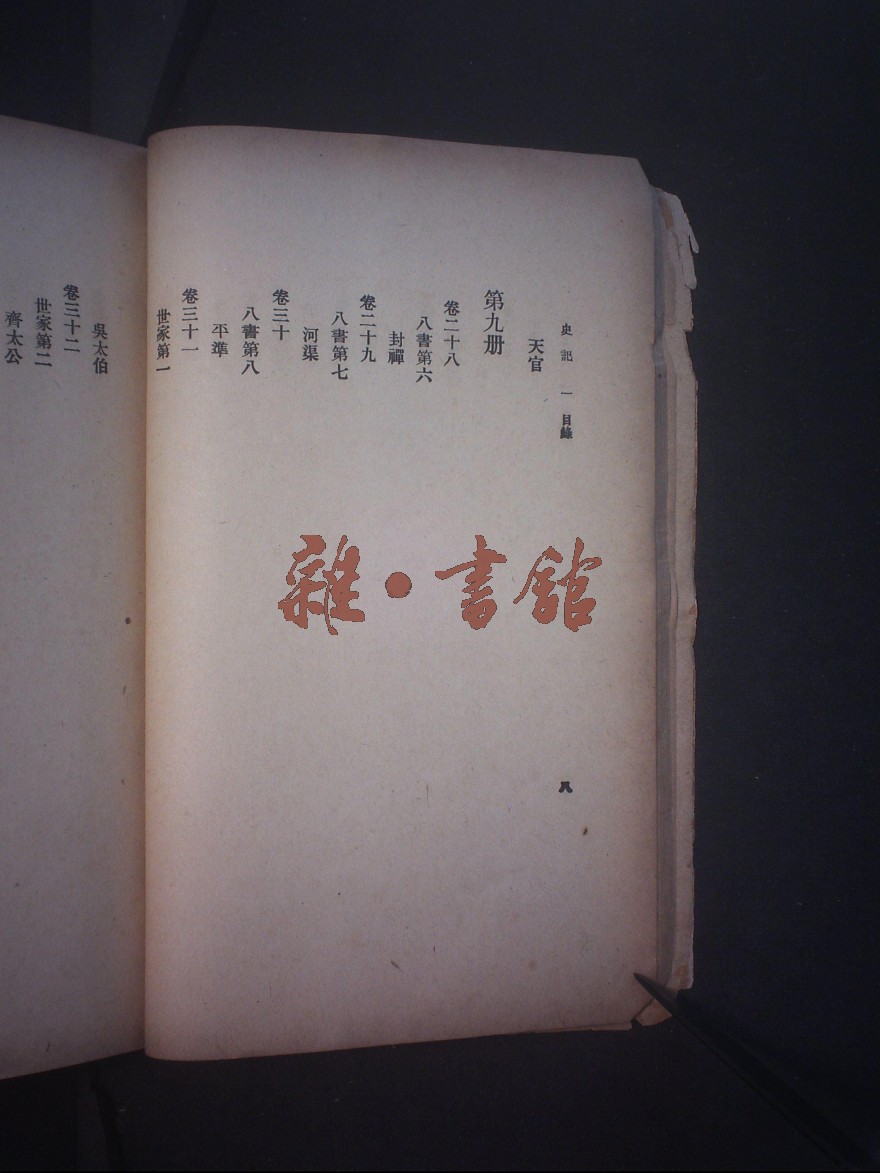 史記一 目錄
天官
第九册
卷二十八
八書第六
封禪
卷二十九
八書第七
河渠
卷三十
八書第八
平準
卷三十一
世家第一
八
吳太伯
卷三十二
世家第二
齊太公
雜·書館